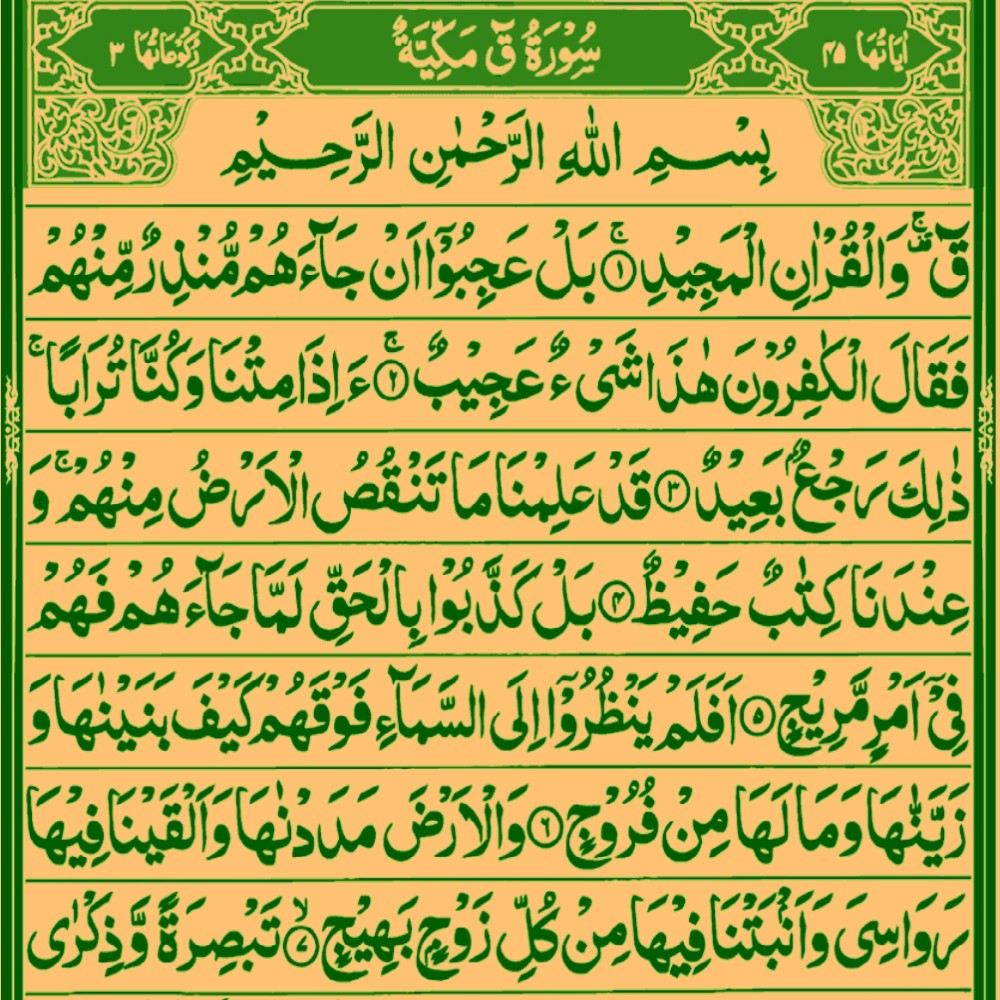 اٰيَاتُهَا ٤٥ سُوْرَةُ قٓ مَكِّيَّةٌ رُكُوْعَاتُهَا ٣
بِسْمِ اللهِ الرَّحْمٰنِ الرَّحِيْمِ
قٓ ۚ وَالْقُرْاٰنِ الْمَجِيْدِ ۚ ١ بَلْ عَجِبُوْۤا اَنْ جَآءَهُمْ مُّنْذِرٌ مِّنْهُمْ
فَقَالَ الْكٰفِرُوْنَ هٰذَا شَیْءٌ عَجِيْبٌ ۚ ٢ ءَاِذَا مِتْنَا وَكُنَّا تُرَابًا ۚ
ذٰلِكَ رَجْعٌۢ بَعِيْدٌ ٣ قَدْ عَلِمْنَا مَا تَنْقُصُ الْاَرْضُ مِنْهُمْ ۚ وَ
عِنْدَنَا كِتٰبٌ حَفِيْظٌ ٤ بَلْ كَذَّبُوْا بِالْحَقِّ لَمَّا جَآءَهُمْ فَهُمْ
فِیْۤ اَمْرٍ مَّرِيْجٍ ٥ اَفَلَمْ يَنْظُرُوْۤا اِلَی السَّمَآءِ فَوْقَهُمْ كَيْفَ بَنَيْنٰهَا وَ
زَيَّنّٰهَا وَمَا لَهَا مِنْ فُرُوْجٍ ٦ وَالْاَرْضَ مَدَدْنٰهَا وَاَلْقَيْنَا فِيْهَا
رَوَاسِیَ وَاَنْۢبَتْنَا فِيْهَا مِنْ كُلِّ زَوْجٍۭ بَهِيْجٍ ۙ ٧ تَبْصِرَةً وَّذِكْرٰی